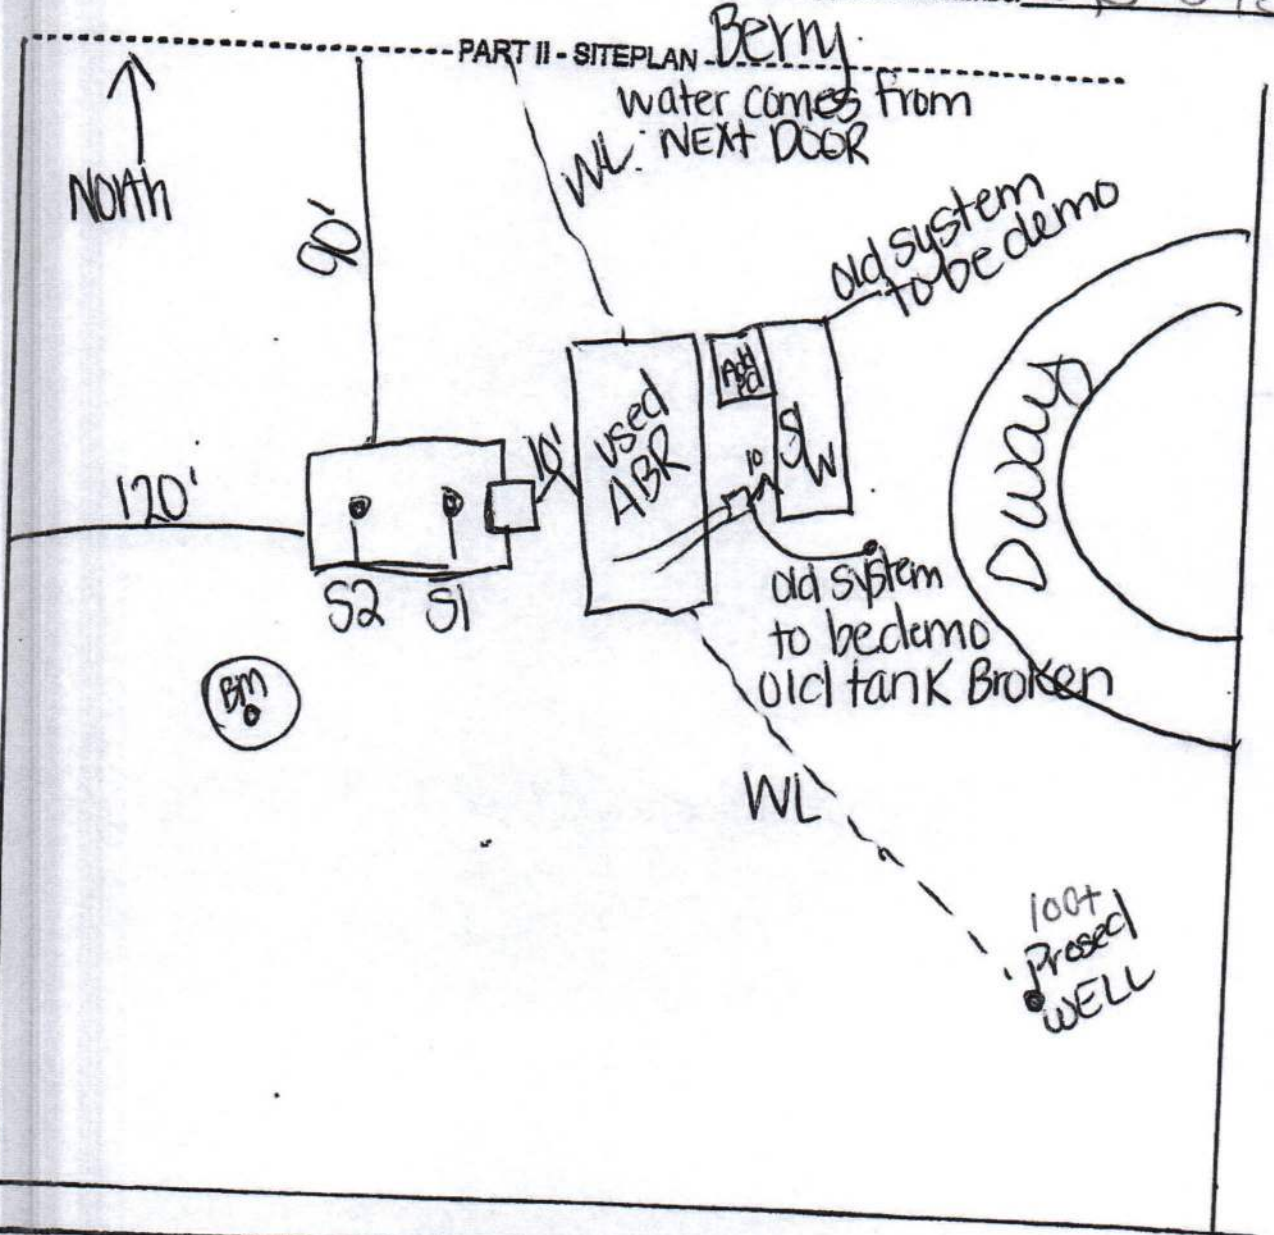 PART II - SITEPLAN Berry
water comes from
NEXT DOOR
WL
North
90'
old system
to be demo
Add
SW
Used
ABR
10'
10
Dway
120'
S2 S1
old system
to be demo
old tank Broken
BM
WL
100+
Prosed
WELL